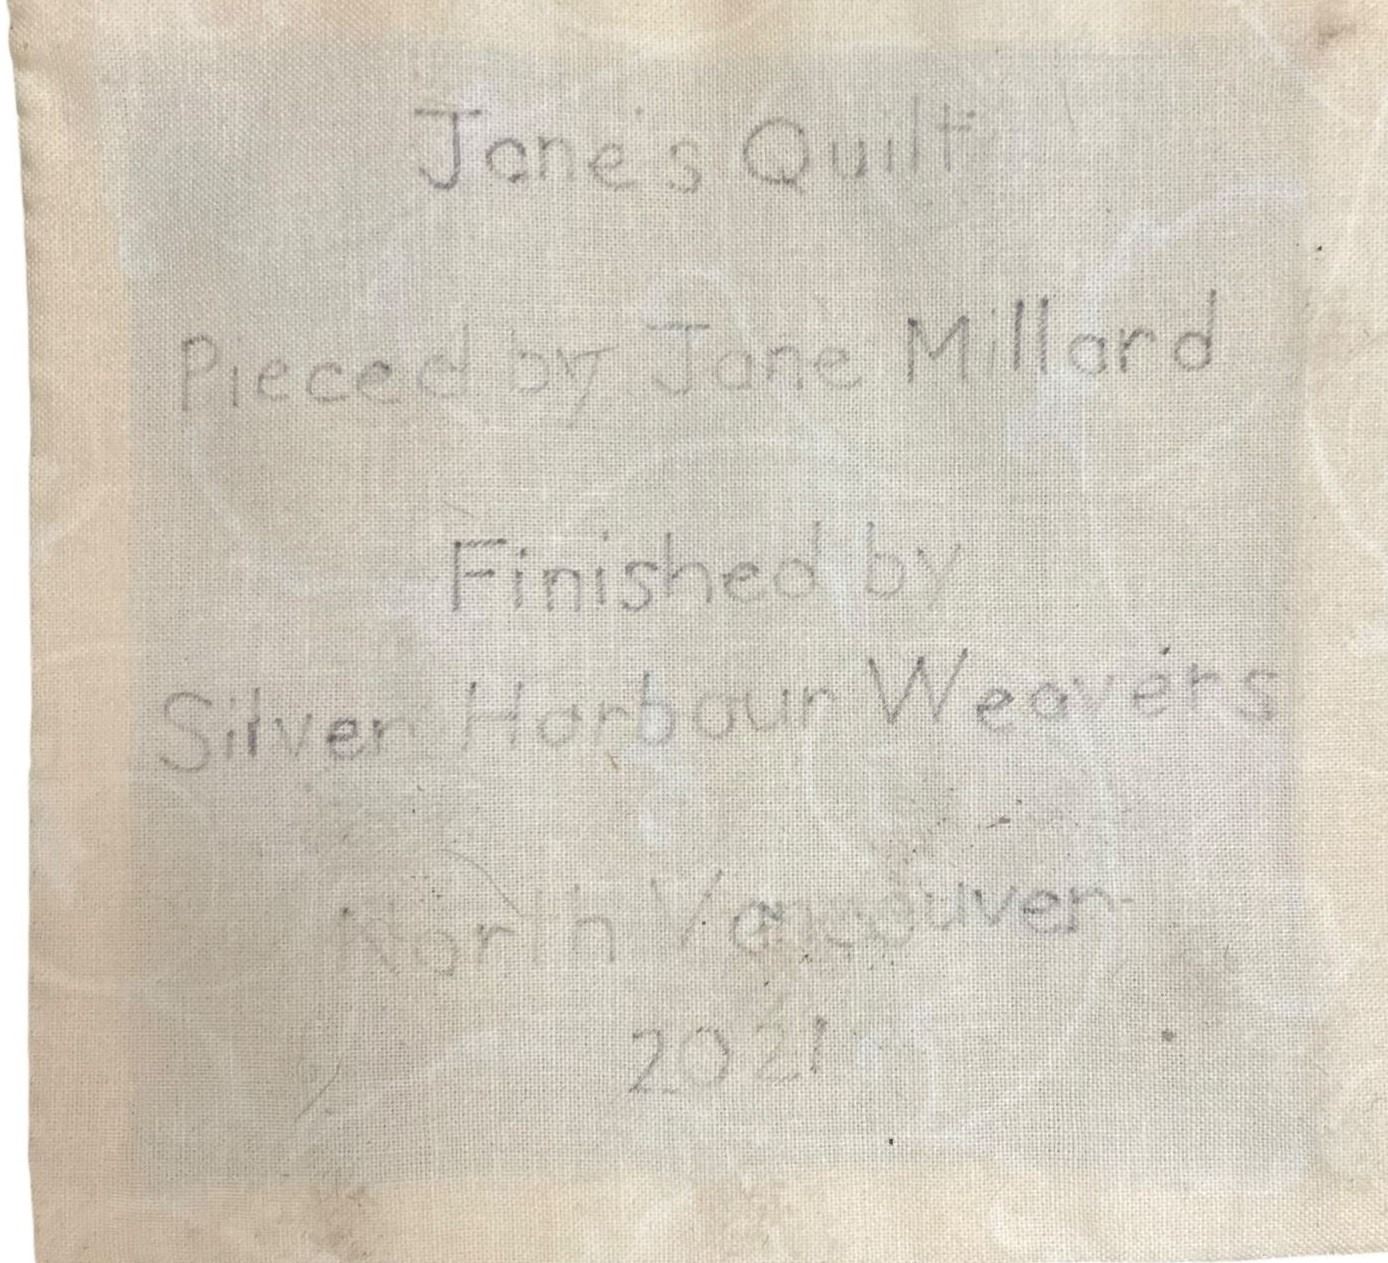 Jane's Quilt
Pieced by Jane Millard
Finished by
Silver Harbour Weavers
North Vancouver
2021